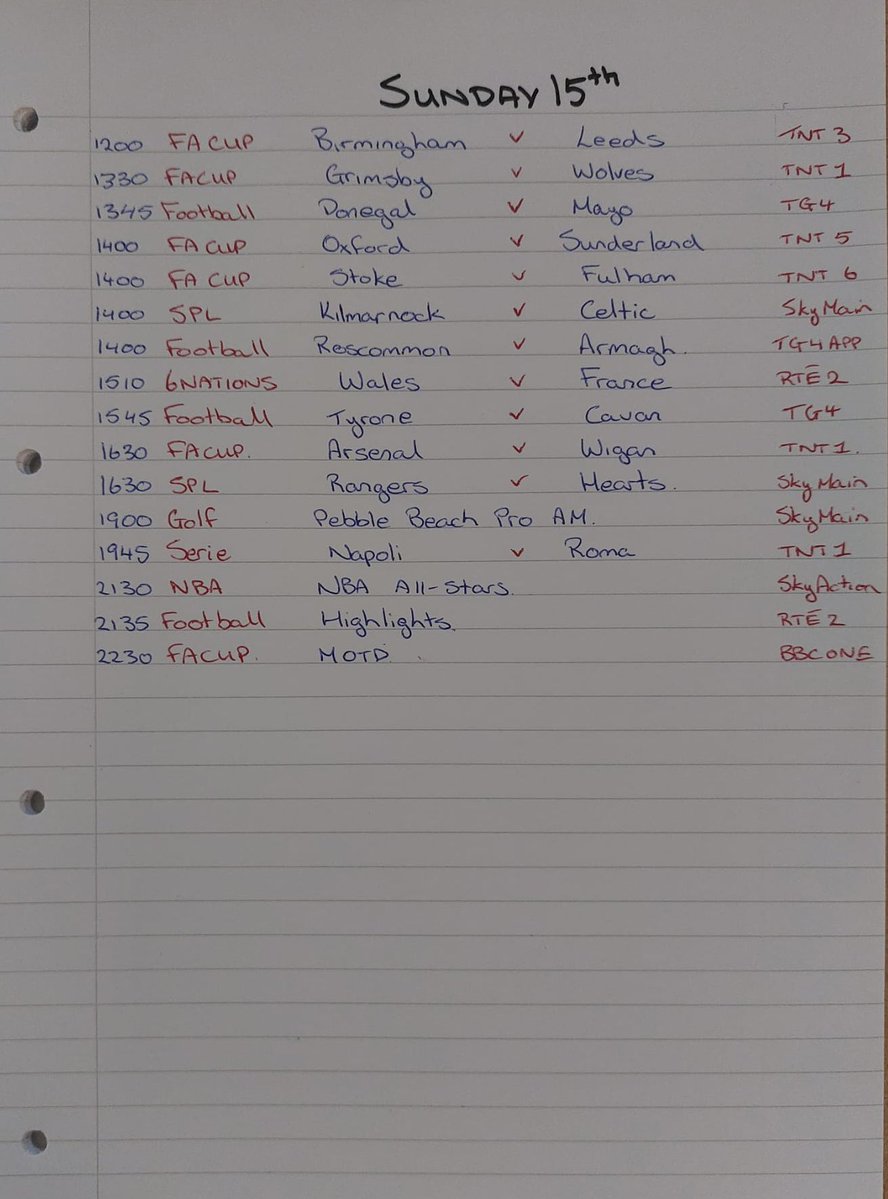 SUNDAY 15th
1200 FA CUP Birmingham v Leeds TNT 3
1330 FACUP Grimsby v Wolves TNT 1
1345 Football Donegal v Mayo TG4
1400 FA CUP Oxford v Sunderland TNT 5
1400 FA CUP Stoke v Fulham TNT 6
1400 SPL Kilmarnock v Celtic Sky Main
1400 Football Roscommon v Armagh. TG4 APP
1510 6NATIONS Wales v France RTÉ 2
1545 Football Tyrone v Cavan TG4
1630 FACUP. Arsenal v Wigan TNT 1.
1630 SPL Rangers v Hearts. Sky Main
1900 Golf Pebble Beach Pro AM. Sky Main
1945 Serie Napoli v Roma TNT 1
2130 NBA NBA All-Stars. SkyAction
2135 Football Highlights. RTÉ 2
2230 FACUP. MOTD. BBC ONE